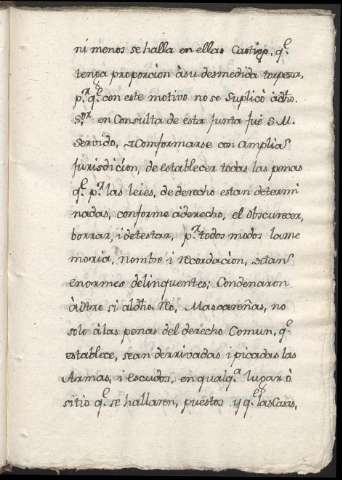 ni menos se halla en ellas Castigo, q.e
tenga proporcion à su desmedida
p.r q.e con este motivo no se Suplicò à dho.
S.or en Consulta de esta junta fuè S. M.
Servido, conformarse con amplia.
Jurisdicion, de establecer todas las penas
q.e p.r las leies, de derecho estan determi
nadas, conforme à derecho, el obscurecer,
borrar, i detestar, p.r todos modos la me
moria, nombre i recordacion, de tan.
enormes delinquentes; Condenaron
si al dho. Mascareñas, no
solo à las penas del derecho Comun, q.e
establece, sean derrivadas i picadas las
Armas, i escudos, en qualq.a lugar ò
sitio q.e se hallaren, puestos y q.e las Casas,